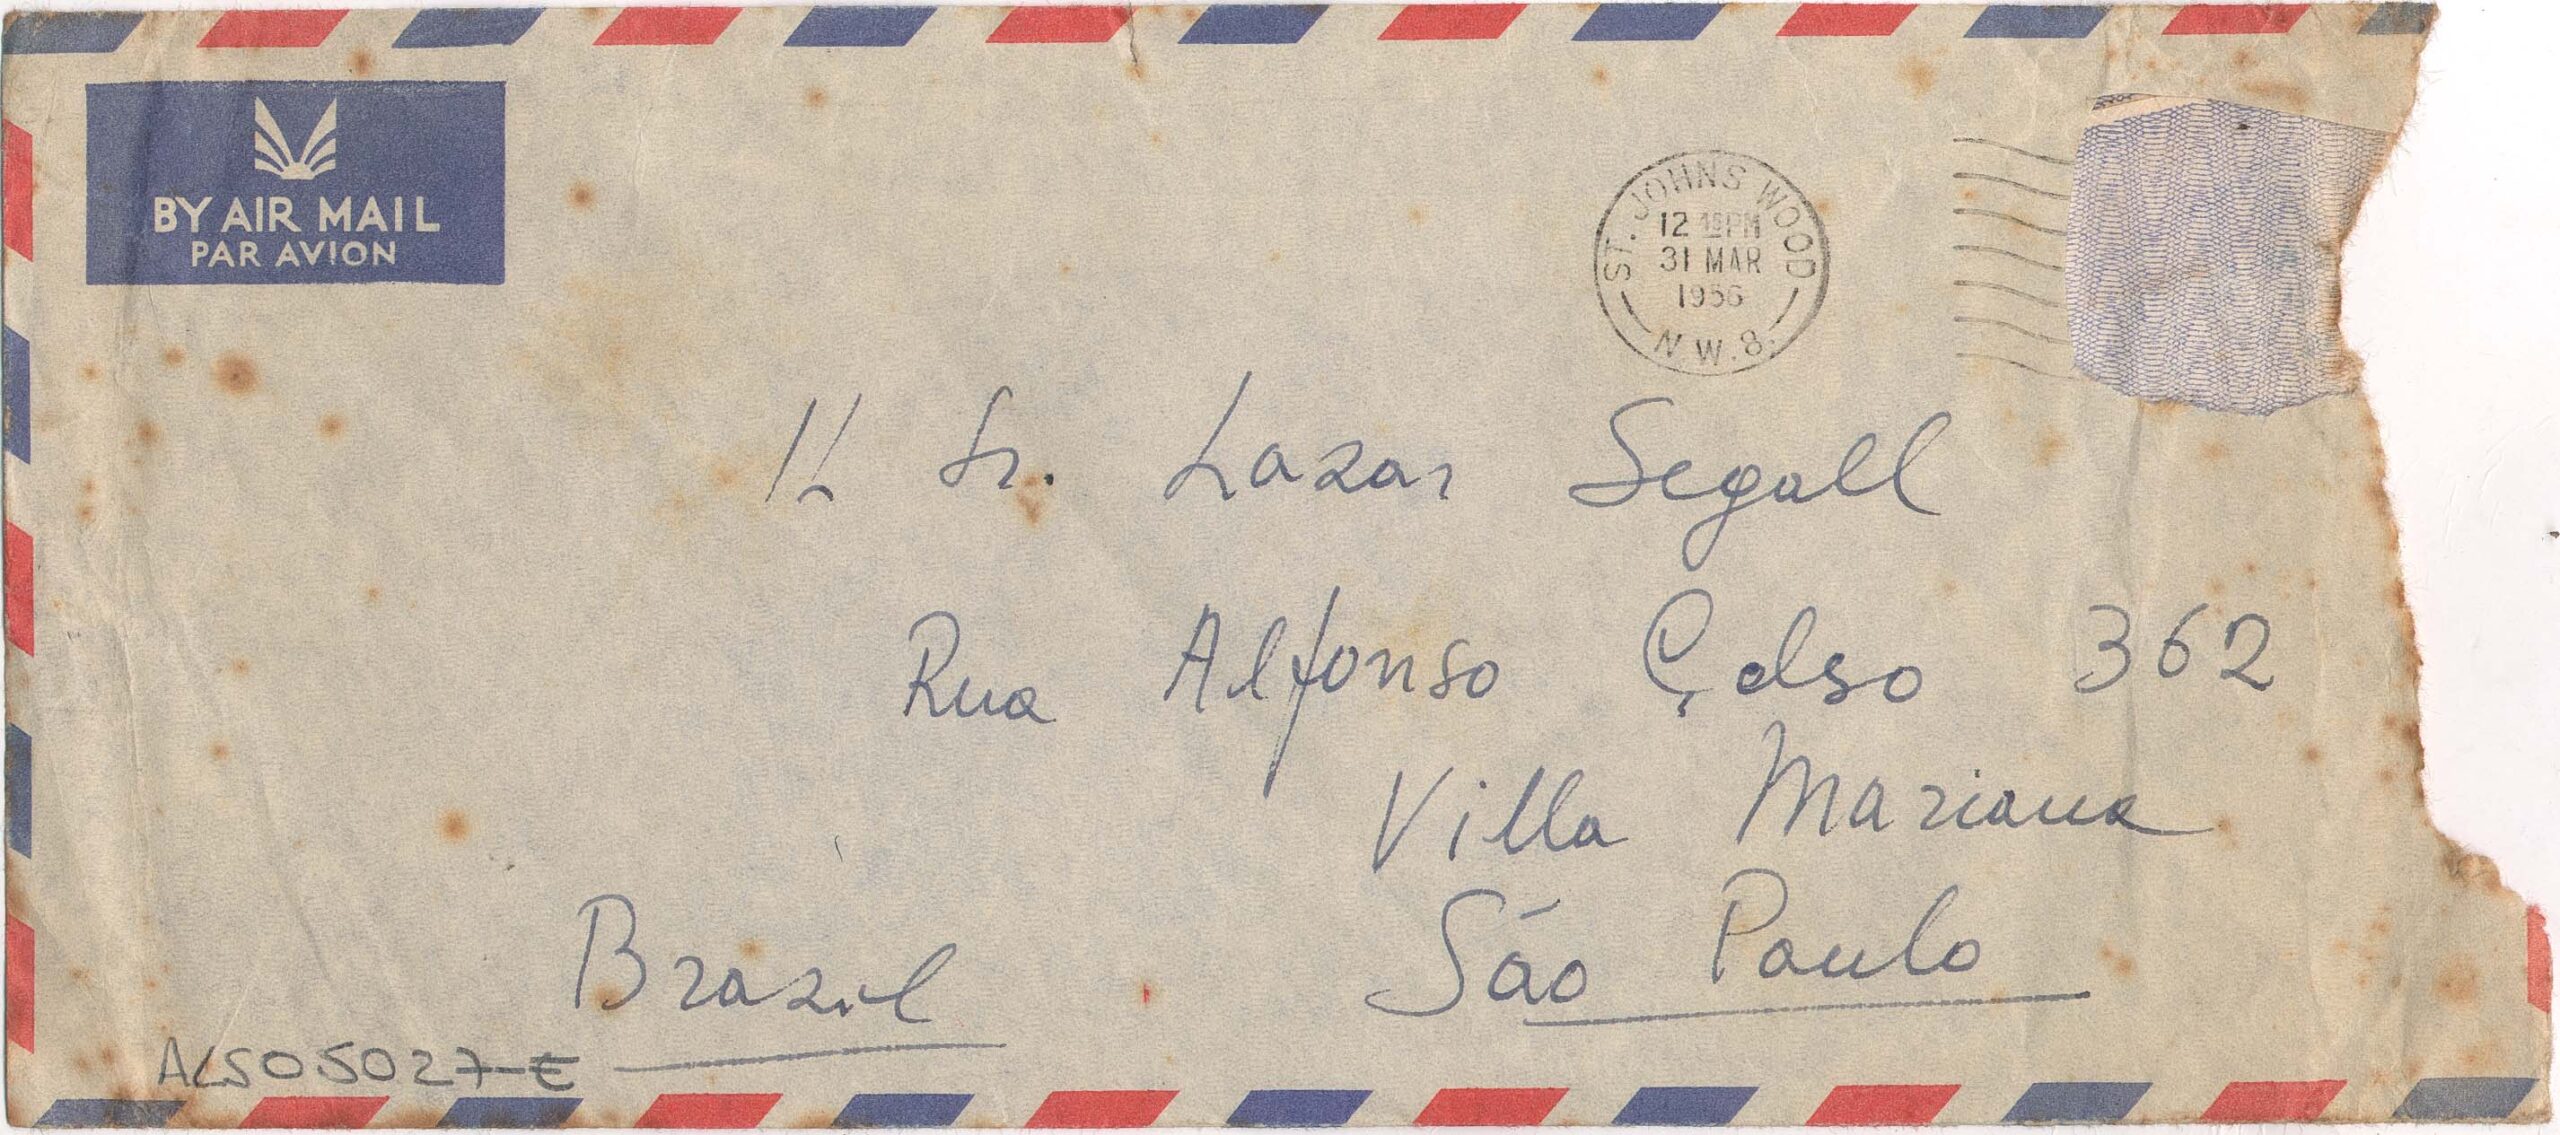 BY AIR MAIL
PAR AVION
ST. JOHNS WOOD
12 15 PM
31 MAR
1956
N.W.8.
Il Sr. Lazar Segall
Rua Alfonso Çelso 362
Villa Mariana
São Paulo
Brazil
ALS05027-E